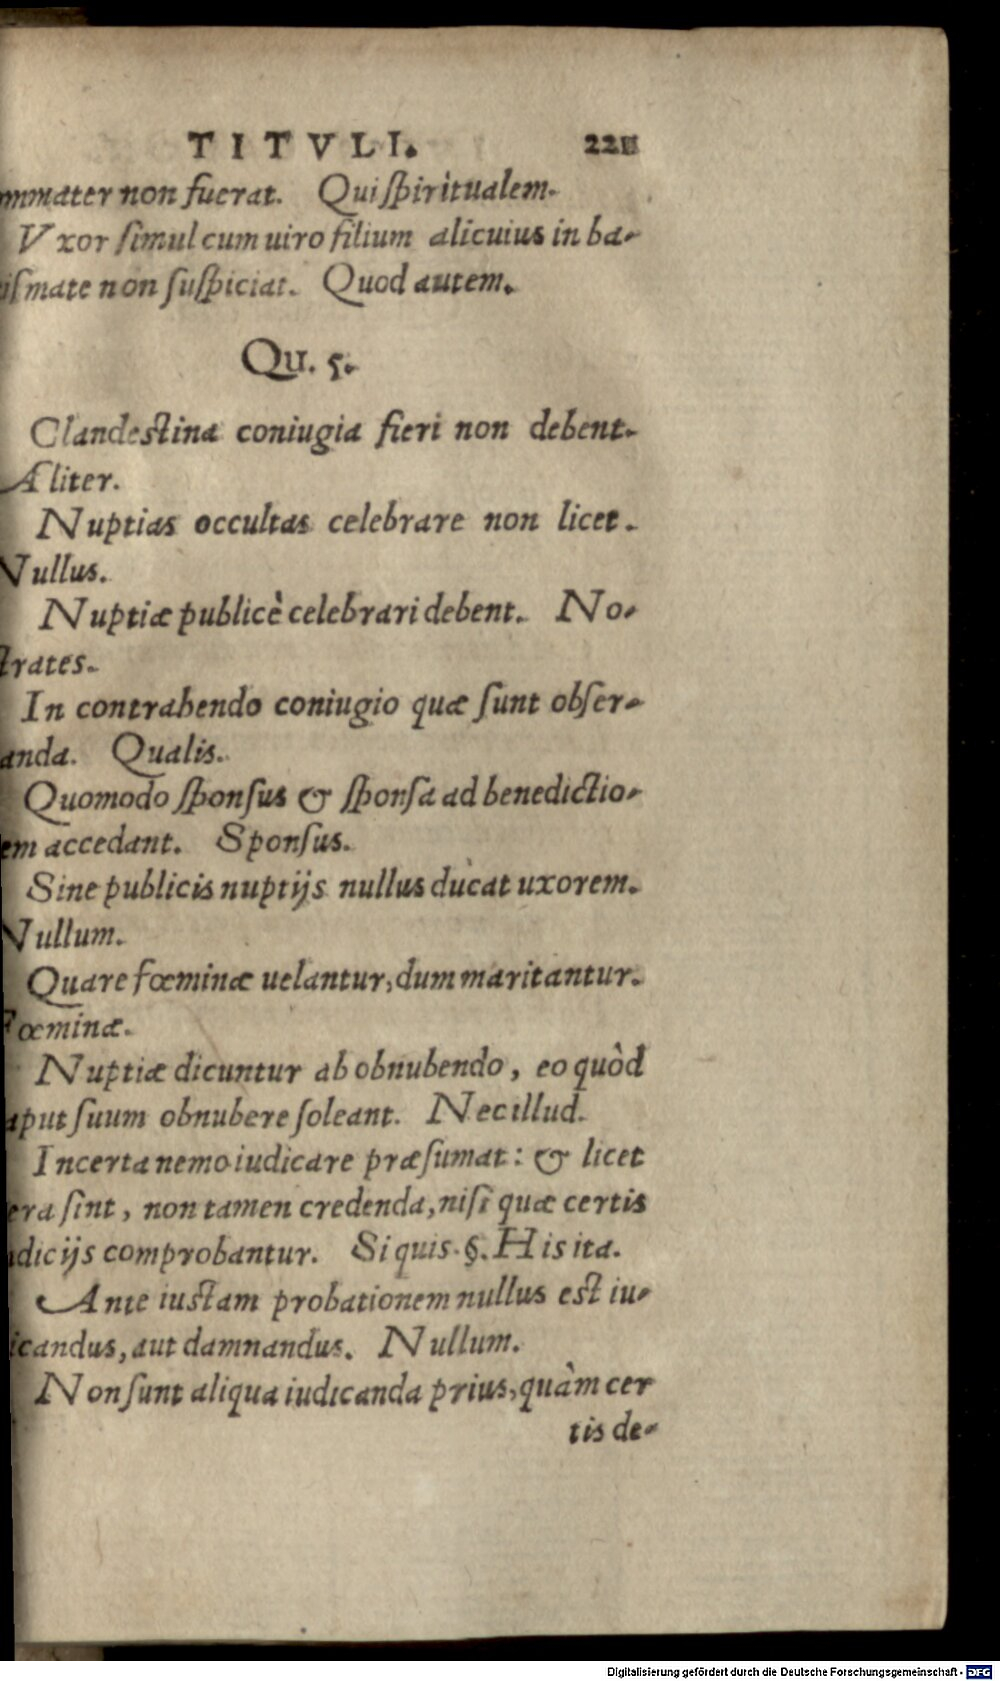 TITVLI. 221
mmater non fuerat. Qui spiritualem.
Vxor simul cum uiro filium alicuius in ba-
ismate non suspiciat. Quod autem.
Qu. 5.
Clandestina coniugia fieri non debent.
Aliter.
Nuptias occultas celebrare non licet.
Nullus.
Nuptiæ publicè celebrari debent. No-
strates.
In contrahendo coniugio quæ sunt obser-
anda. Qualis.
Quomodo sponsus & sponsa ad benedictio-
em accedant. Sponsus.
Sine publicis nuptijs nullus ducat uxorem.
Nullum.
Quare fœminæ uelantur, dum maritantur.
Fœminæ.
Nuptiæ dicuntur ab obnubendo, eo quòd
aput suum obnubere soleant. Nec illud.
Incerta nemo iudicare præsumat: & licet
era sint, non tamen credenda, nisi quæ certis
dicijs comprobantur. Si quis. §. His ita.
Ante iustam probationem nullus est iu-
icandus, aut damnandus. Nullum.
Non sunt aliqua iudicanda prius, quàm cer
tis de-
Digitalisierung gefördert durch die Deutsche Forschungsgemeinschaft - DFG